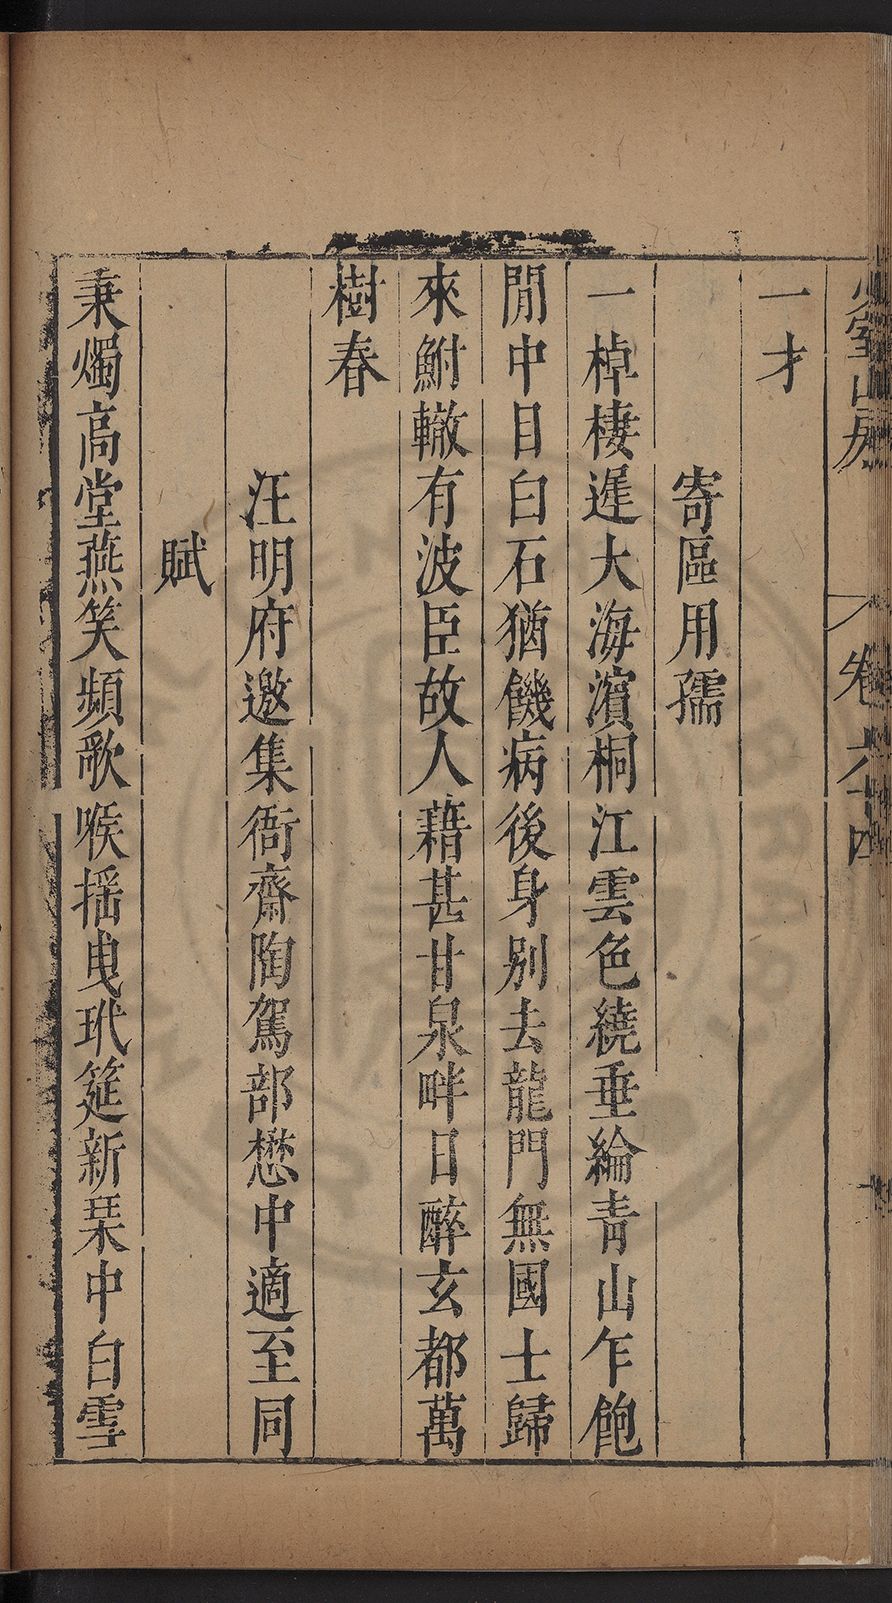 少室山房
卷六十四
一才
寄區用孺
一棹棲遲大海濱桐江雲色繞垂綸青山乍飽
閒中目白石猶饑病後身別去龍門無國士歸
來鮒轍有波臣故人藉甚甘泉畔日醉玄都萬
樹春
汪明府邀集衙齋陶駕部懋中適至同
賦
秉燭高堂燕笑頻歌喉摇曳玳筵新琹中白雪